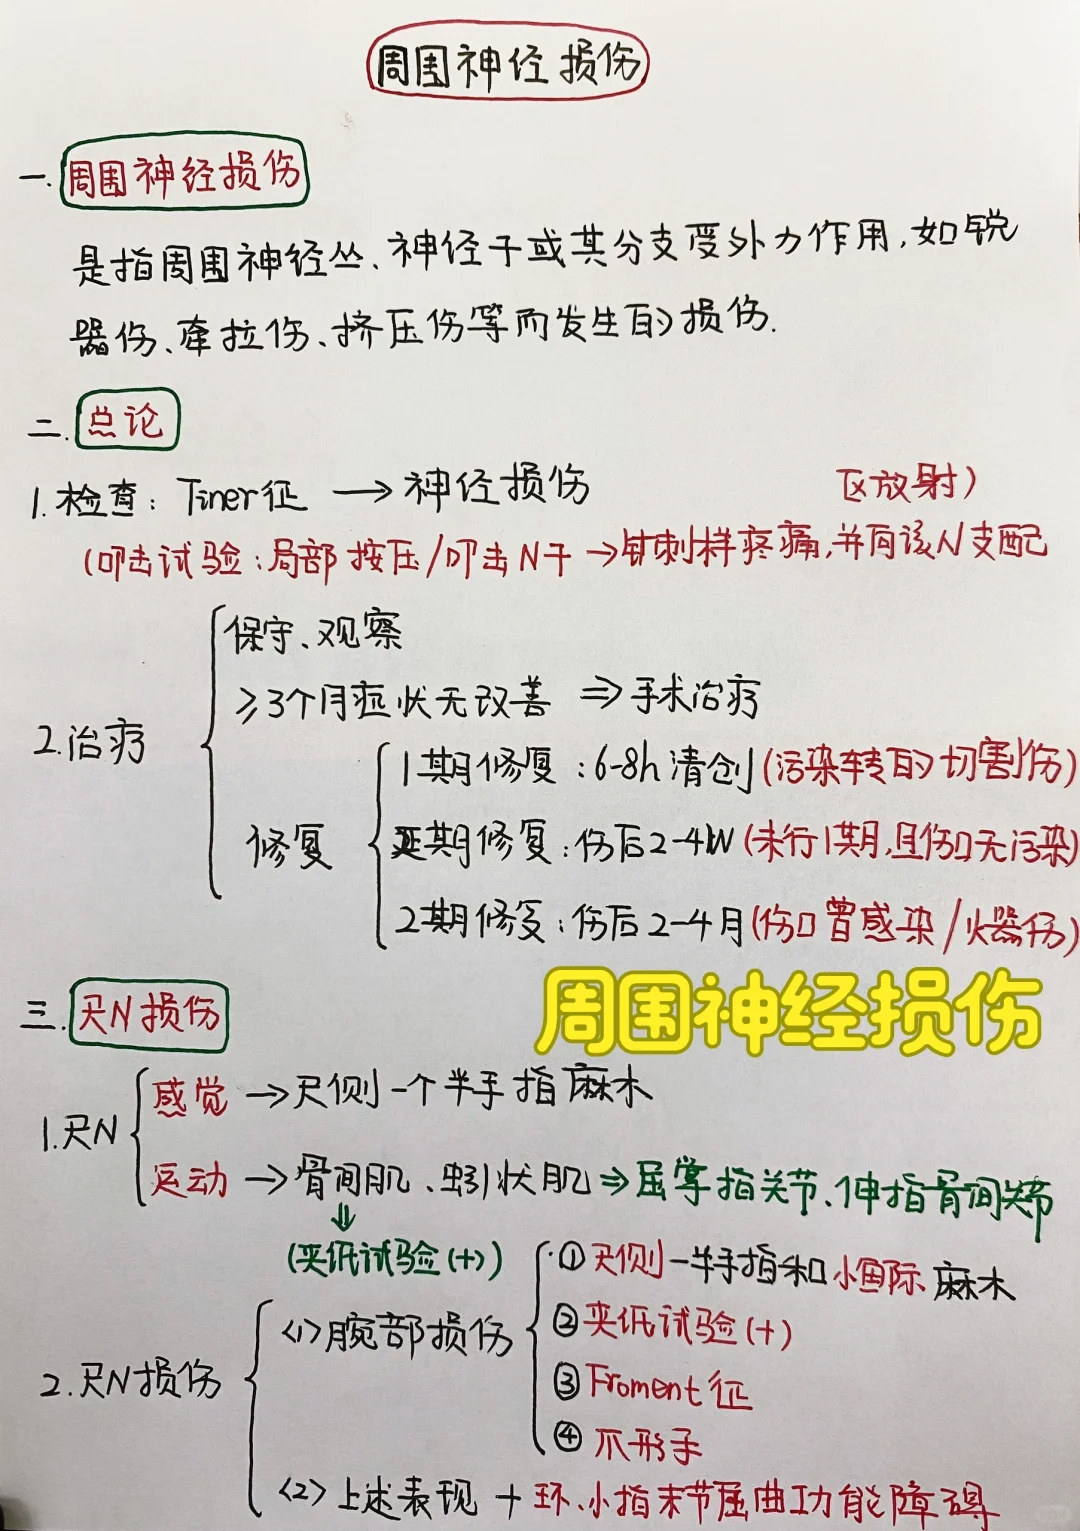 周围神经损伤
一.周围神经损伤
是指周围神经丛、神经干或其分支受外力作用,如锐
器伤、牵拉伤、挤压伤等而发生的损伤.
二.总论
1.检查: Tiner征 → 神经损伤
(叩击试验:局部按压/叩击N干→针刺样疼痛,并向该N支配
区放射)
2.治疗
保守、观察
≥3个月症状无改善 ⇒ 手术治疗
修复
1期修复:6-8h清创(污染轻的切割伤)
延期修复:伤后2-4W(未行1期,且伤口无污染)
2期修复:伤后2-4月(伤口曾感染/火器伤)
周围神经损伤
三.尺N损伤
1.尺N
感觉→尺侧一个半手指麻木
运动→骨间肌、蚓状肌⇒屈掌指关节、伸指骨间关节
⇓
(夹纸试验(+))
2.尺N损伤
(1)腕部损伤
①尺侧一半手指和小鱼际麻木
②夹纸试验(+)
③Froment征
④爪形手
(2)上述表现+环、小指末节屈曲功能障碍